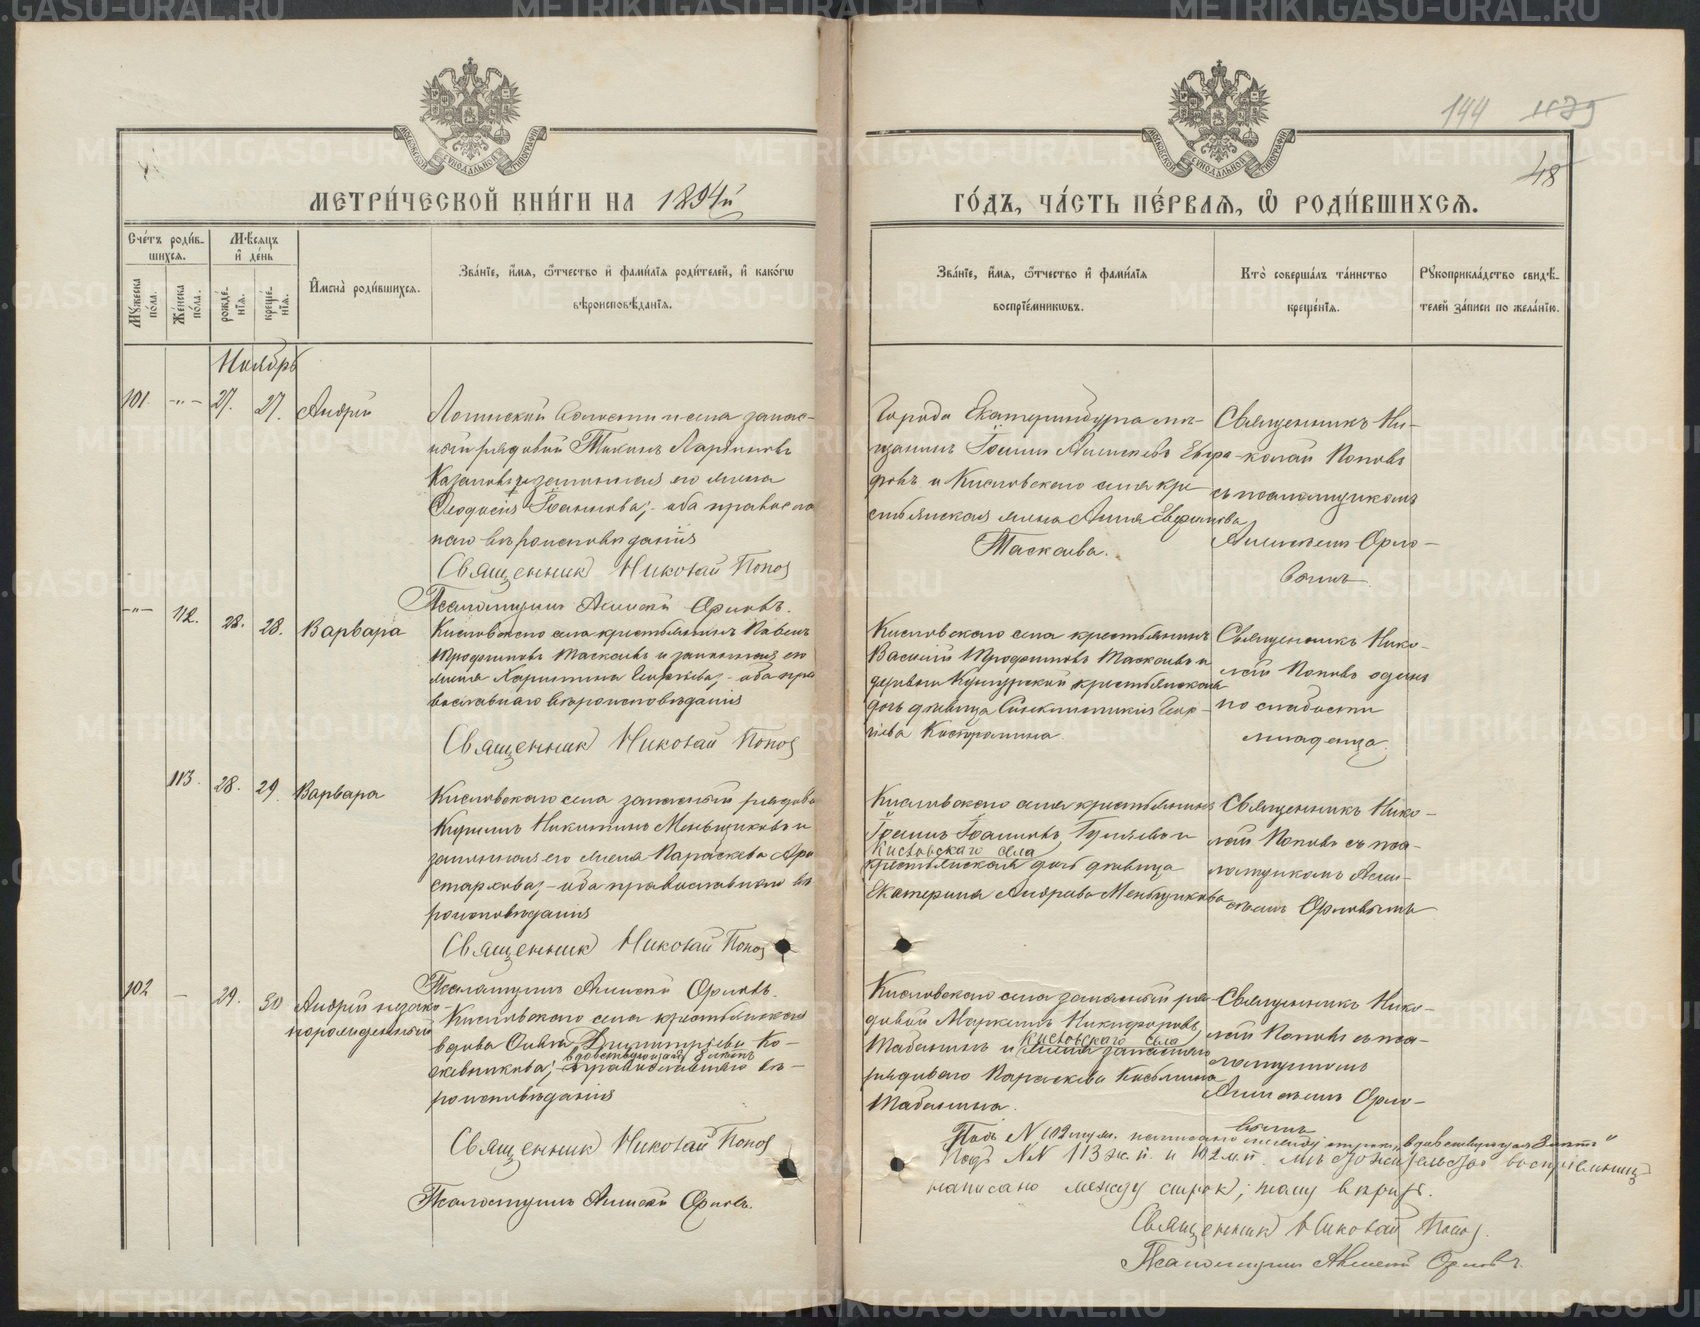 METRIKI.GASO-URAL.RU
144 1179
48
МОСКОВСКОЙ СѴНОДАЛЬНОЙ ТИПОГРАФІИ
МЕТРИ́ЧЕСКОЙ КНИ́ГИ НА 1894й
ГО́ДЪ, ЧА́СТЬ ПЕ́РВАЯ, Ѽ РОДИ́ВШИХСЯ.
Сче́тъ роди́вшихся.
Мѣ́сяцъ и҆ де́нь
Мꙋ́жеска по́ла.
Же́нска по́ла.
рожде́нїя.
креще́нїя.
И҆мена̀ роди́вшихся.
Зва́нїе, и҆́мя, ѻ҆́тчество и҆ фами́лїя роди́телей, и҆ како́гѡ
вѣроисповѣ́данїя.
Зва́нїе, и҆́мя, ѻ҆́тчество и҆ фами́лїя
воспрїе́мникѡвъ.
Кто̀ соверша́лъ та́инство
креще́нїя.
Рꙋкоприкла́дство свидѣ́-
телей за́писи по жела́нїю.
Ноябрь
101 -"- 27. 27. Андрей
волости и села запас-
ной рядовой
законная его жена
Ѳеодосія Іоаннова; оба православ
наго вѣроисповѣданія
Священник Николай Попов
Псаломщикъ Алексѣй Орловъ.
Города Екатеринбурга мѣ-
щанинъ Іоаннъ Алексѣевъ
и Кисловскаго села кре
стьянская жена Анна
Таскаева.
Священникъ Ни-
колай Поповъ
съ псаломщикомъ
Алексѣемъ Орло-
вымъ.
-"- 112. 28. 28. Варвара
Кисловскаго села крестьянинъ Павелъ
Трофимовъ Таскаевъ и законная его
жена Харитина Георгіева; оба пра
вославнаго вѣроисповѣданія
Священник Николай Попов
Кисловскаго села крестьянинъ
Василій Трофимовъ Таскаевъ и
деревни крестьянская
дочь дѣвица Синклитикія Геор-
гіева
Священникъ Нико-
лай Поповъ одинъ
по слабости
младенца.
113. 28. 29 Варвара
Кисловскаго села запасный рядовой
Кириллъ Никитинъ Меньщиковъ и
законная его жена Параскева Ари
стархова; оба православнаго вѣ
роисповѣданія
Священник Николай Попов
Псаломщикъ Алексѣй Орловъ.
Кисловскаго села крестьянинъ
Іоаннъ Іоанновъ и
Кисловскаго села
крестьянская дочь дѣвица
Екатерина Андреева Меньщикова
Священникъ Нико-
лай Поповъ съ пса-
ломщикомъ Алек-
сѣемъ Орловымъ
102 - 29. 30 Андрей незако
норожденный
Кисловскаго села крестьянская
вдова Димитріева Ко-
жевникова;
православнаго вѣ-
роисповѣданія
Священник Николай Попов
Псаломщикъ Алексѣй Орловъ.
Кисловскаго села запасный ря
довой Маркеллъ Никифоровъ
Табачинъ и
Кисловскаго села
жена запаснаго
рядоваго Параскева Косьмина
Священникъ Нико-
лай Поповъ съ пса-
ломщикомъ
Алексѣемъ Орло-
вымъ
Подъ N 102 м.п. написано между строкъ
Подъ NN 113 ж.п. и 102 м.п. мѣстожительство воспріемницъ
написано между строк; тому вѣрить.
Священник Николай Попов.
Псаломщикъ Алексѣй Орловъ.